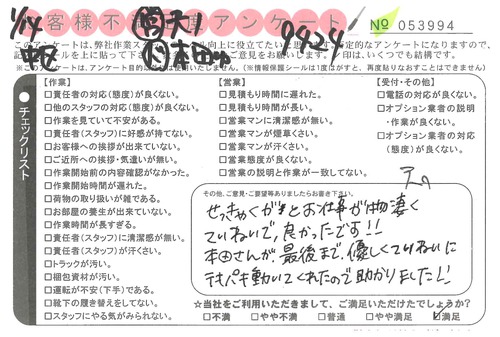 お客様不満度アンケート
1/14
No 053994
9424
このアンケートは、弊社作業ス
※このアンケートは、アンケート目的
(※情報保護シールは1度はがすと、再度貼りなおすことはできません)
チェックリスト
【作業】
□責任者の対応(態度)が良くない。
□他のスタッフの対応(態度)が良くない。
□作業を見ていて不安がある。
□責任者(スタッフ)に好感が持てない。
□お客様への挨拶が出来ていない。
□ご近所への挨拶・気遣いが無い。
□作業開始前の内容確認がなかった。
□作業開始時間が遅れた。
□荷物の取り扱いが雑である。
□お部屋の養生が出来ていない。
□作業時間が長すぎる。
□責任者(スタッフ)に清潔感が無い。
□責任者(スタッフ)が汗くさい。
□トラックが汚い。
□梱包資材が汚い。
□運転が不安(下手)である。
□靴下の履き替えをしてない。
□スタッフにやる気がみられない。
【営業】
□見積もり時間に遅れた。
□見積もり時間が長い。
□営業マンに清潔感が無い。
□営業マンが煙草くさい。
□営業マンが汗くさい。
□営業態度が良くない。
□営業の説明と作業が一致してない。
【受付・その他】
□電話の対応が良くない。
□オプション業者の説明
・作業が良くない。
□オプション業者の対応
(態度)が良くない。
その他、ご意見・ご要望等ありましたらお書き下さい。
せっきゃくがきとお仕事が物凄く
ていねいで、良かったです!!
本田さんが最後まで、優しくていねいに
テキパキ動いてくれたので助かりました!!
☆当社をご利用いただきまして、ご満足いただけたでしょうか?
□不満 □やや不満 □普通 □やや満足 ☑満足